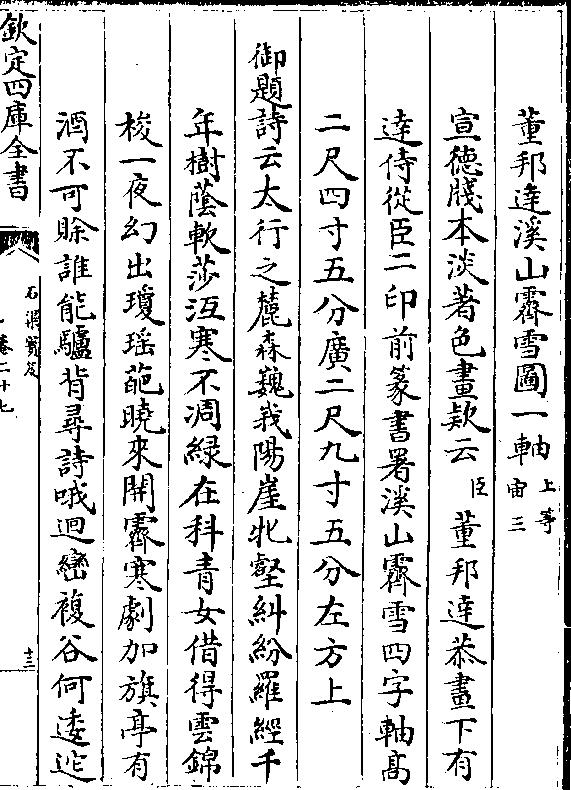 董邦達溪山霽雪圖一軸上等宙三
宣德牋本淡著色畫款云臣董邦達恭畫下有
達侍從臣二印前篆書署溪山霽雪四字軸高
二尺四寸五分廣二尺九寸五分左方上
御題詩云太行之麓森巍峩陽崖牝壑糾紛羅經千
年樹蔭軟莎沍寒不凋緑在科青女借得雲錦
梭一夜幻出瓊瑤葩曉來開霽寒劇加旗亭有
酒不可賒誰能驢背尋詩哦迴巒複谷何逶迤
欽定四庫全書
石渠寳笈
卷二十七
十三